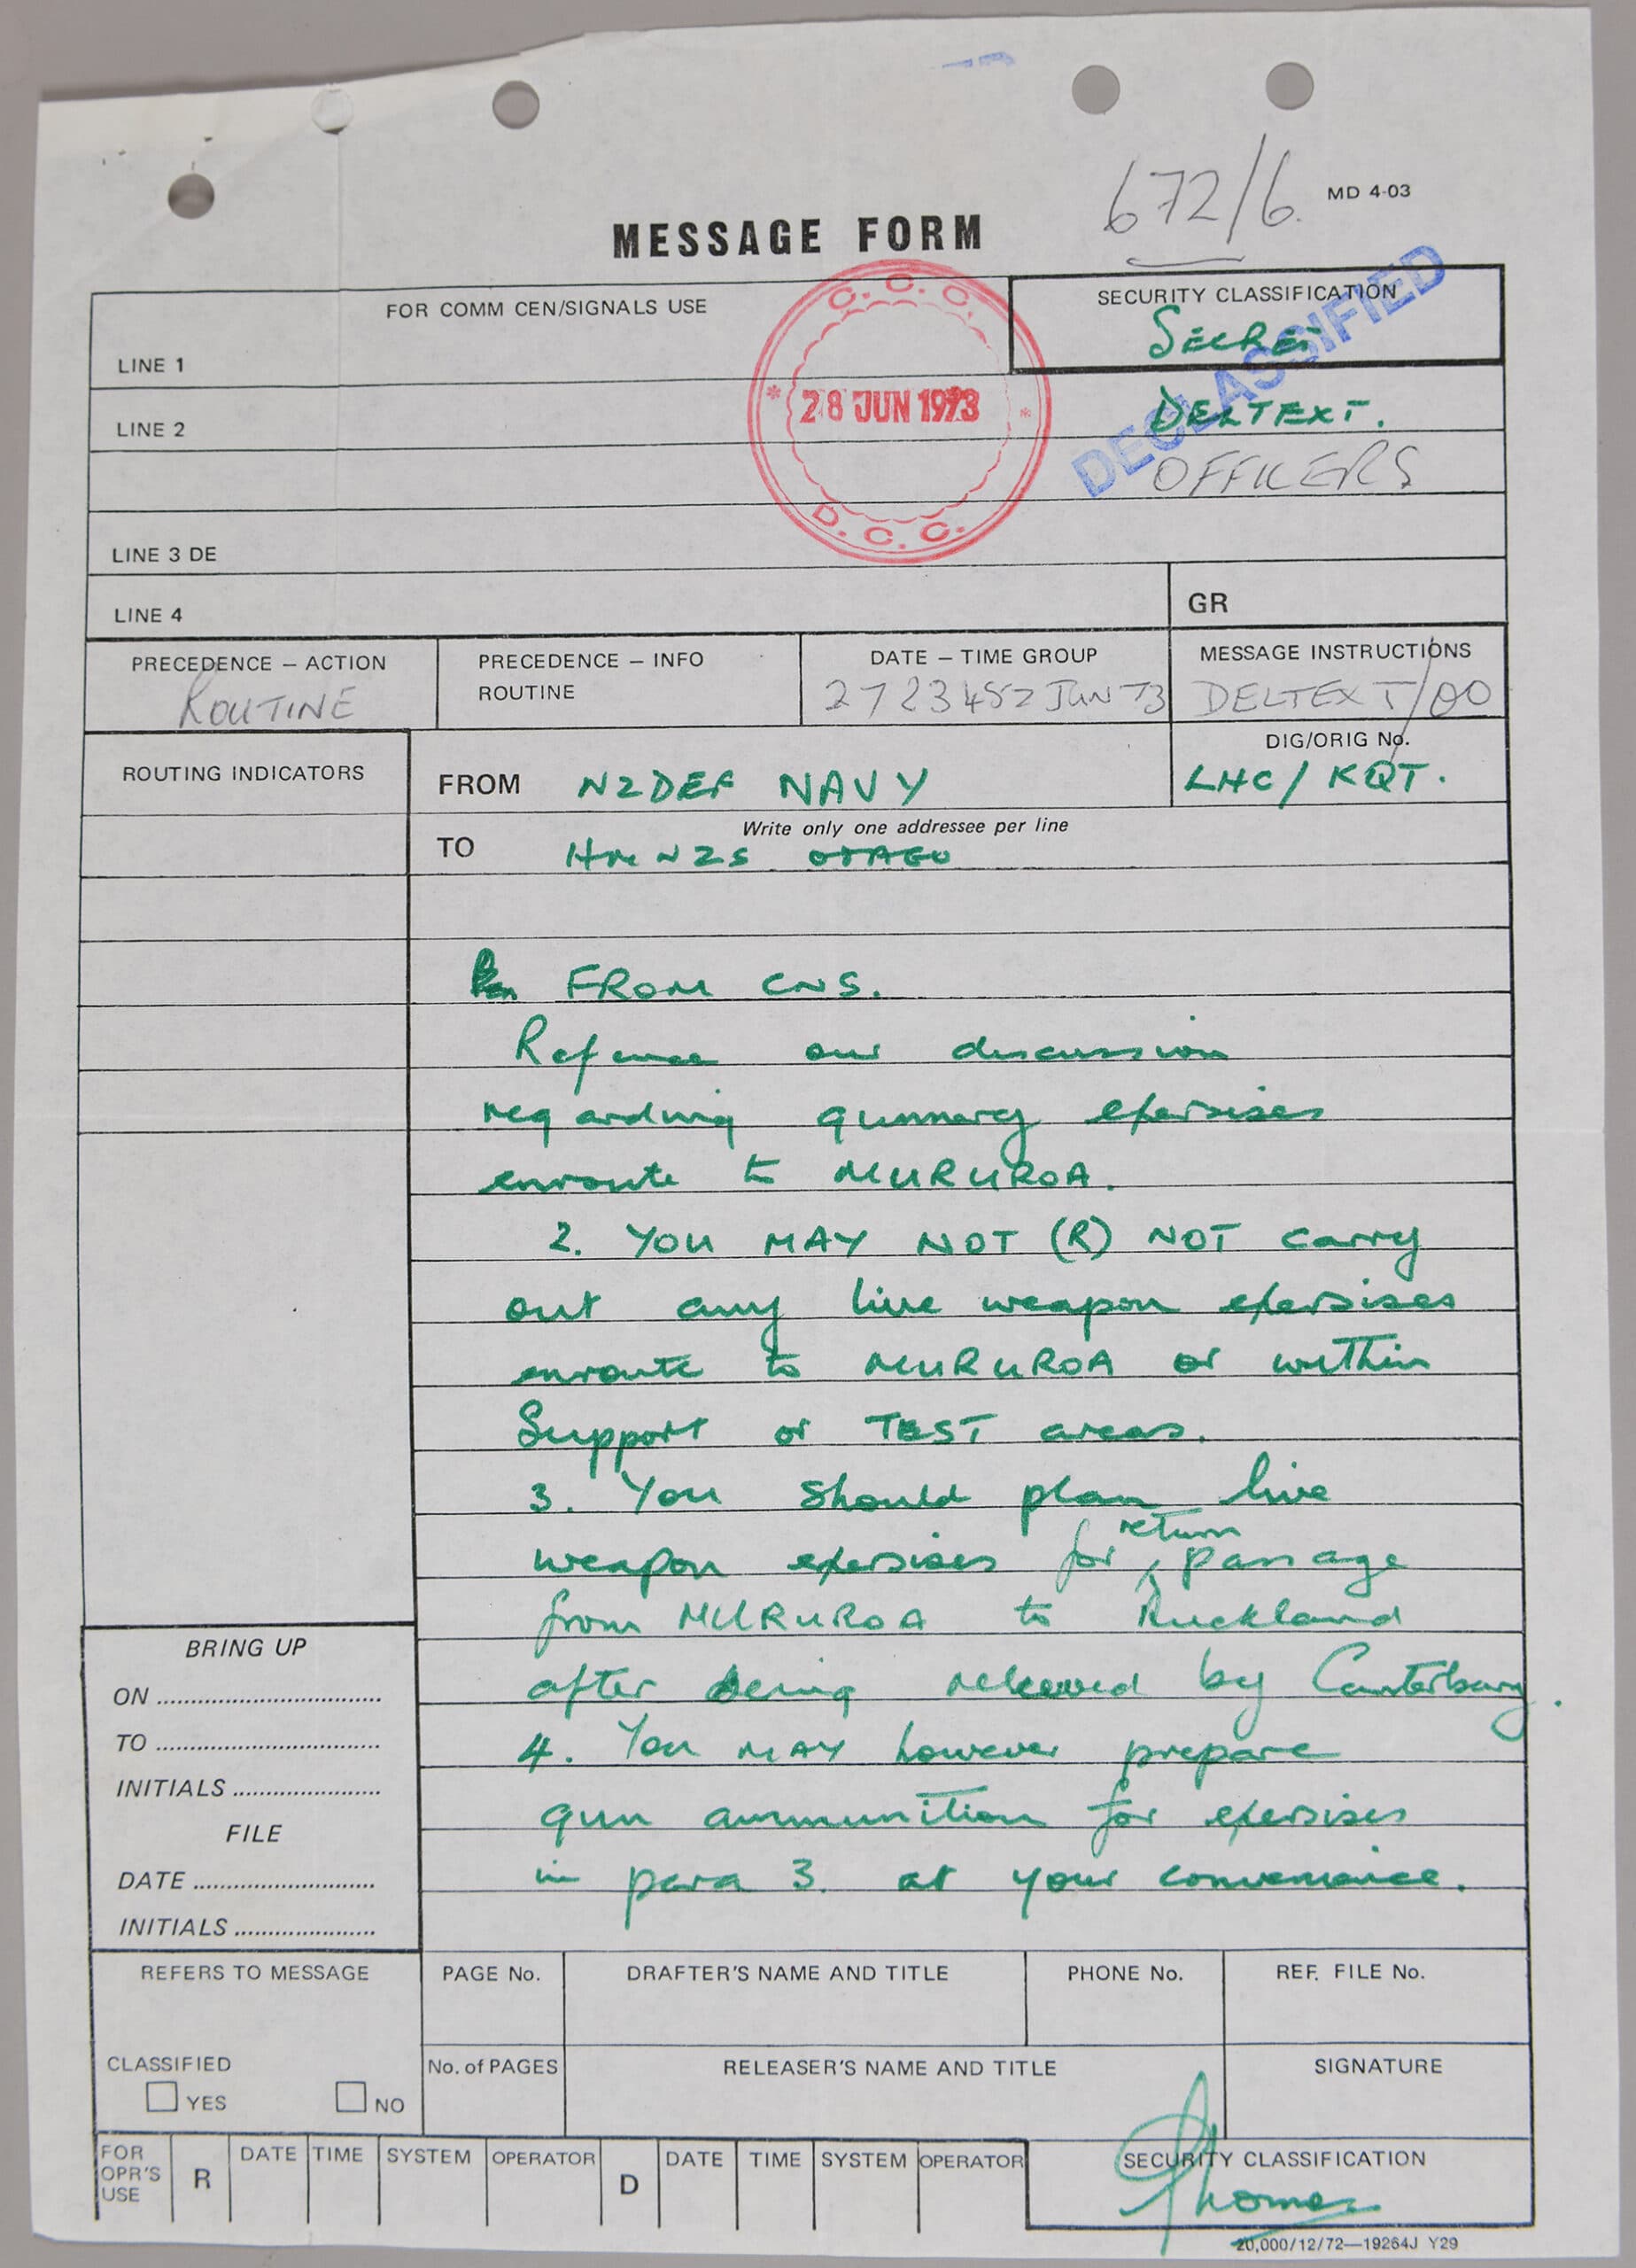 672/6.
MD 4-03
MESSAGE FORM
FOR COMM CEN/SIGNALS USE
SECURITY CLASSIFICATION
SECRET
DECLASSIFIED
C. C. C.
28 JUN 1973
D. C. C.
LINE 1
LINE 2
DELTEXT.
OFFICERS
LINE 3 DE
LINE 4
GR
PRECEDENCE – ACTION
ROUTINE
PRECEDENCE – INFO
ROUTINE
DATE – TIME GROUP
272345Z JUN 73
MESSAGE INSTRUCTIONS
DELTEXT/OO
ROUTING INDICATORS
FROM NZDEF NAVY
DIG/ORIG No.
LHC/KQT.
Write only one addressee per line
TO HMNZS OTAGO
FROM CNS.
Reference our discussion
regarding gunnery exersises
enroute to MURUROA.
2. YOU MAY NOT (R) NOT carry
out any live weapon exersises
enroute to MURUROA or within
Support or TEST areas.
3. You should plan live
weapon exersises for return passage
from MURUROA to Auckland
after being relieved by Canterbury.
4. You MAY however prepare
gun ammunition for exersises
in para 3. at your convenience.
BRING UP
ON
TO
INITIALS
FILE
DATE
INITIALS
REFERS TO MESSAGE
PAGE No.
DRAFTER'S NAME AND TITLE
PHONE No.
REF. FILE No.
CLASSIFIED
YES
NO
No. of PAGES
RELEASER'S NAME AND TITLE
SIGNATURE
FOR OPR'S USE
R
DATE
TIME
SYSTEM
OPERATOR
D
DATE
TIME
SYSTEM
OPERATOR
SECURITY CLASSIFICATION
20,000/12/72—19264J Y29